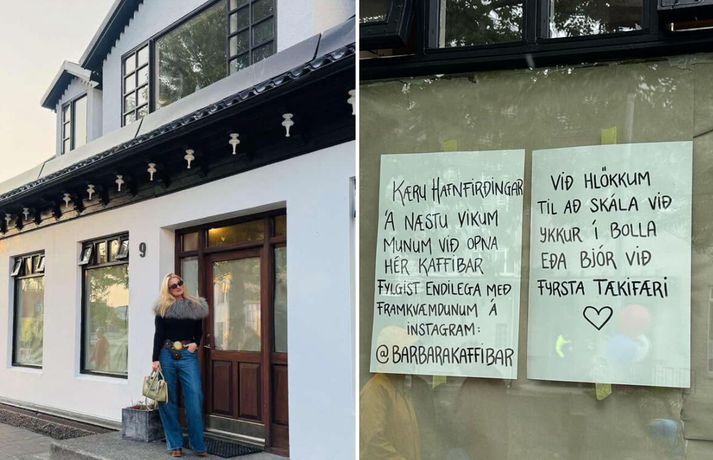 9
KÆRU HAFNFIRÐINGAR
Á NÆSTU VIKUM
MUNUM VIÐ OPNA
HÉR KAFFIBAR
FYLGIST ENDILEGA MEÐ
FRAMKVÆMDUNUM Á
INSTAGRAM:
@BARBARAKAFFIBAR
VIÐ HLÖKKUM
TIL AÐ SKÁLA VIÐ
YKKUR Í BOLLA
EÐA BJÓR VIÐ
FYRSTA TÆKIFÆRI